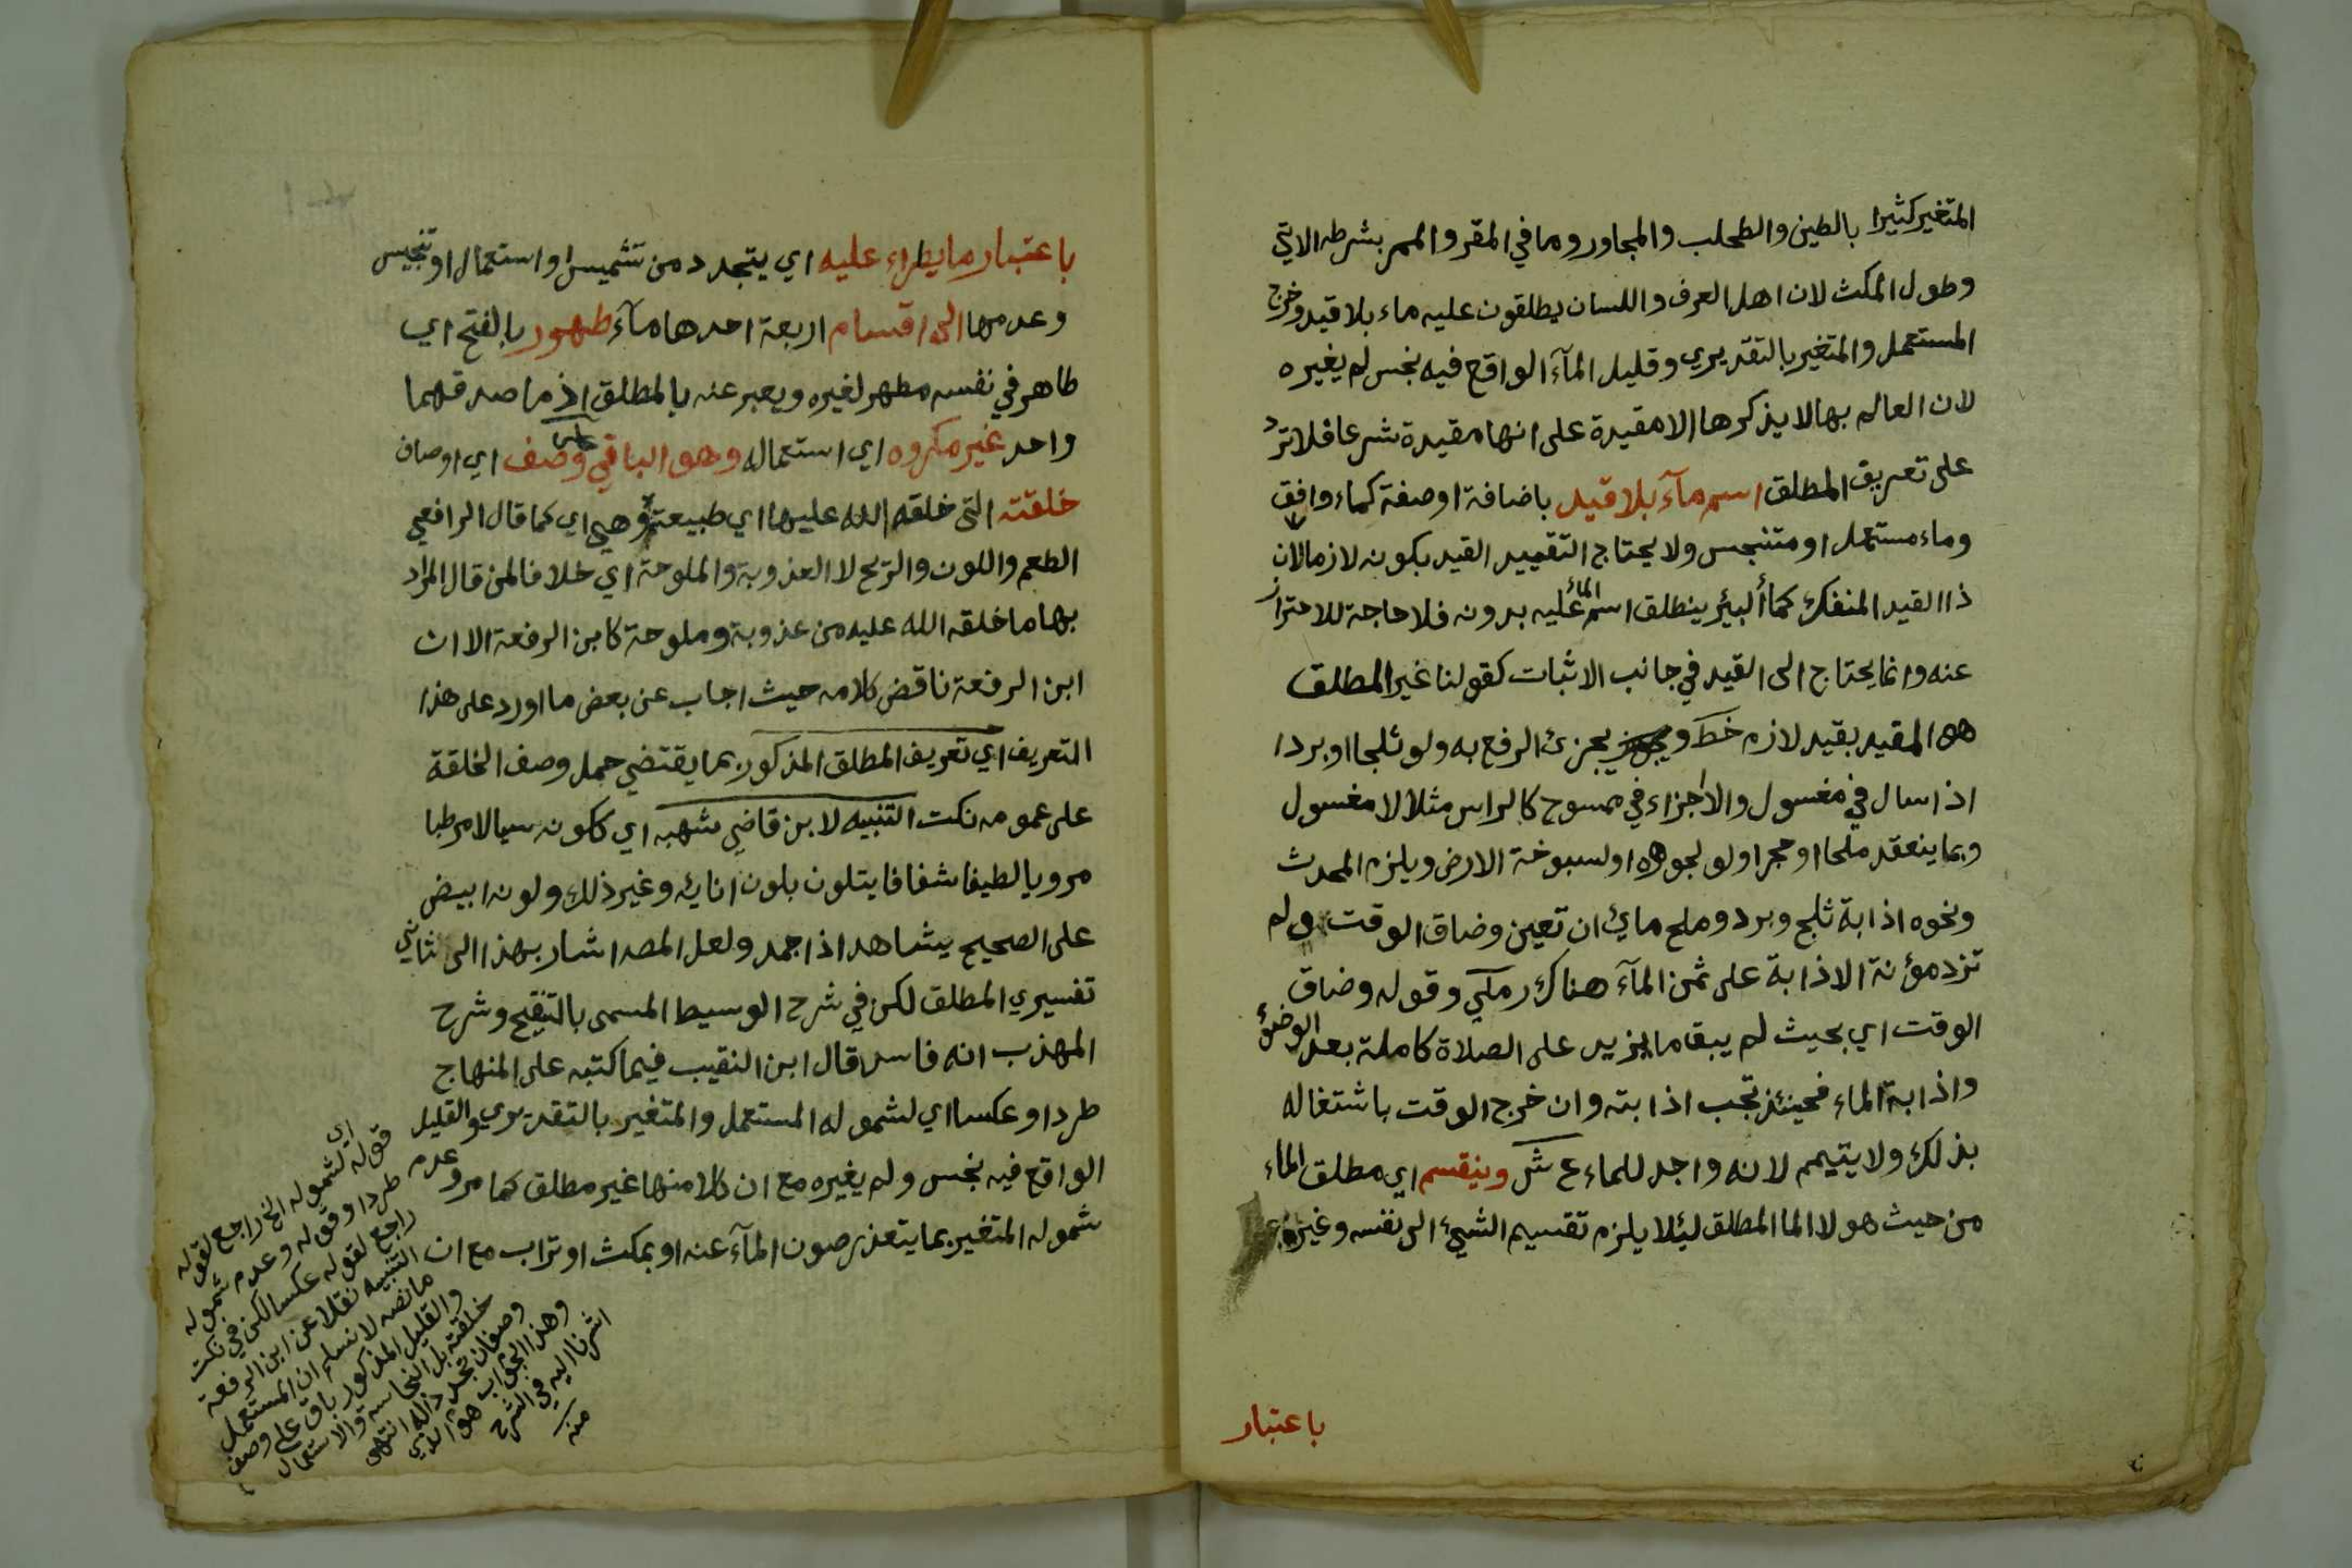 المتغير كثيرا بالطين والطحلب والمجاور وما في المقر والممر بشرطه الاتي
وطول المكث لان اهل العرف واللسان يطلقون عليه ماء بلا قيد وخرج
المستعمل والمتغير بالتقديري وقليل المآء الواقع فيه نجس لم يغيره
لان العالم بها لا يذكرها الا مقيدة على انها مقيدة شرعا فلا ترد
على تعريف المطلق اسم مآء بلا قيد باضافة او صفة كماء وافق
وماء مستعمل او متنجس ولا يحتاج التقييد القيد بكونه لازما لان
ذا القيد المنفك كمأ البئر ينطلق اسم المائ عليه بدونه فلا حاجة للاحتراز
عنه وانما يحتاج الى القيد في جانب الاثبات كقولنا غير المطلق
هو المقيد بقيد لازم خط ويجزئ الرفع به ولو ثلجا او بردا
اذا سال في مغسول والاجزاء في ممسوح كالراس مثلا لا مغسول
وبما ينعقد ملحا او حجرا ولو لجوهره او لسبوخة الارض ويلزم المحدث
ونحوه اذابة ثلج وبرد وملح مائ ان تعين وضاق الوقت ولم
تزد مؤنة الاذابة على ثمن المآء هناك رملي وقوله وضاق
الوقت اي بحيث لم يبقا ما يزيد على الصلاة كاملة بعد الوضوء
واذابة الماء فحينئذ تجب اذابته وان خرج الوقت باشتغاله
بذلك ولا يتيمم لانه واجد للماء ع ش وينقسم اي مطلق الماء
من حيث هو لا الما المطلق ليئلا يلزم تقسيم الشيئ الى نفسه وغيره
باعتبار
باعتبار ما يطراء عليه اي يتجدد من تشميس او استعمال او تنجيس
وعدمها الى اقسام اربعة احدها مآء طهور بالفتح اي
طاهر في نفسه مطهر لغيره ويعبر عنه بالمطلق اذ ما صدقهما
واحد غير مكروه اي استعماله وهو الباقي على وصف اي اوصاف
خلقته التى خلقه الله عليها اي طبيعته وهي اي كما قال الرافعي
الطعم واللون والريح لا العذوبة والملوحة اي خلافا لمن قال المراد
بها ما خلقه الله عليه من عذوبة وملوحة كابن الرفعة الا ان
ابن الرفعة ناقض كلامه حيث اجاب عن بعض ما اورد على هذا
التعريف اي تعريف المطلق المذكور بما يقتضي حمل وصف الخلقة
على عمومه نكت التنبيه لابن قاضي شهبه اي ككونه سيالا مرطبا
مرويا لطيفا شفافا يتلون بلون انايه وغير ذلك ولونه ابيض
على الصحيح يشاهد اذا جمد ولعل المصـ اشار بهذا الى ثاني
تفسيري المطلق لكن في شرح الوسيط المسمى بالتنقيح وشرح
المهذب انه فاسد قال ابن النقيب فيما كتبه على المنهاج
طردا وعكسا اي لشموله المستعمل والمتغير بالتقديري والقليل
الواقع فيه نجس ولم يغيره مع ان كلا منها غير مطلق كما مر وعدم
شموله المتغير بما يتعذر صون المآء عنه او بمكث او تراب مع ان
قوله اي لشموله الخ راجع لقوله
طردا وقوله وعدم شموله
راجع لقوله عكسا لكن في نكت
التنبيه نقلا عن ابن الرفعة
ما نصه لا نسلم ان المستعمل
والقليل المذكور باق على وصف
خلقته بل النجاسة والاستعمال
وصفان تجدد له انتهى
وهذا الجواب هو الذي
اشرنا اليه في الشرح
منه